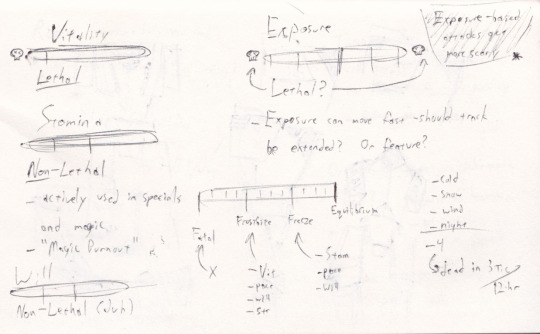 Vitality
Lethal
Stamina
Non-Lethal
- actively used in specials
and magic
- "Magic Burnout"
Will
Non-Lethal (duh)
Exposure
Lethal?
- Exposure can move fast - should track
be extended? Or feature?
Fatal
Frostbite
Freeze
Equilibrium
X
- Vit
- pace
- will
- str
- Stam
- pace
- will
Exposure-based
attacks get
more scary
*
- cold
- snow
- wind
- night
- 4
dead in 3
12-hr